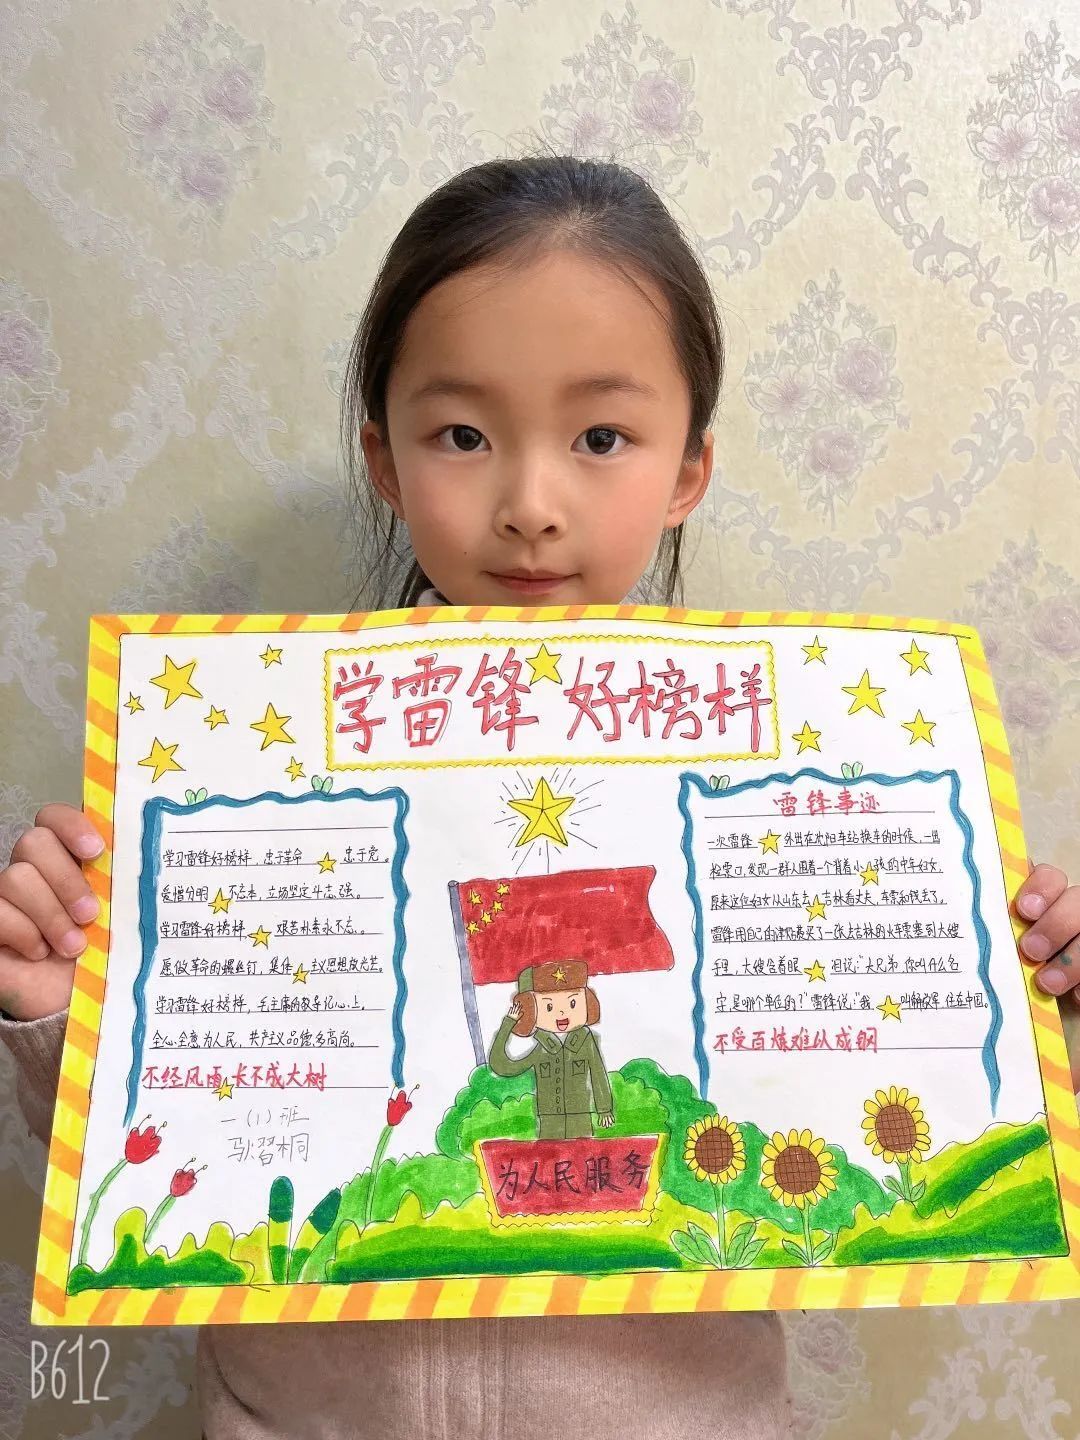 学雷锋 好榜样
学习雷锋好榜样，忠于革命 忠于党。
爱憎分明 不忘本，立场坚定斗志强。
学习雷锋好榜样， 艰苦朴素永不忘。
愿做革命的螺丝钉，集体 主义思想放光芒。
学习雷锋好榜样，毛主席的教导记心上。
全心全意为人民，共产主义品德多高尚。
不经风雨 长不成大树
一（1）班
马熠桐
为人民服务
雷锋事迹
一次雷锋 外出在沈阳车站换车的时候，一出
检票口，发现一群人围着一个背着小孩的中年妇女，
原来这位妇女从山东去 吉林看丈夫，车票和钱丢了。
雷锋用自己的津贴费买了一张去吉林的火车票塞到大嫂
手里，大嫂含着眼 泪说："大兄弟，你叫什么名
字，是哪个单位的？"雷锋说："我 叫解放军，住在中国。"
不受百炼难以成钢
B612